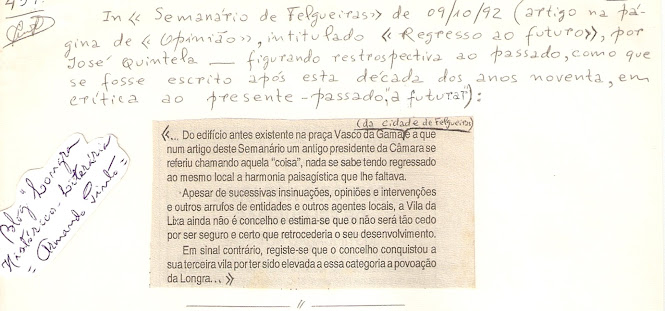 In «Semanário de Felgueiras» de 09/10/92 (artigo na pá-
gina de «Opinião», intitulado «Regresso ao futuro», por
José Quintela — figurando restrospectiva ao passado, como que
se fosse escrito após esta década dos anos noventa, em
crítica ao presente-passado, "a futurar"):
(da cidade de Felgueiras)
«... Do edifício antes existente na praça Vasco da Gama e a que
num artigo deste Semanário um antigo presidente da Câmara se
referiu chamando aquela "coisa", nada se sabe tendo regressado
ao mesmo local a harmonia paisagística que lhe faltava.
Apesar de sucessivas insinuações, opiniões e intervenções
e outros arrufos de entidades e outros agentes locais, a Vila da
Lixa ainda não é concelho e estima-se que o não será tão cedo
por ser seguro e certo que retrocederia o seu desenvolvimento.
Em sinal contrário, registe-se que o concelho conquistou a
sua terceira vila por ter sido elevada a essa categoria a povoação
da Longra... »
Blog "Longra
Histórico-Literária
= Armando Pinto =